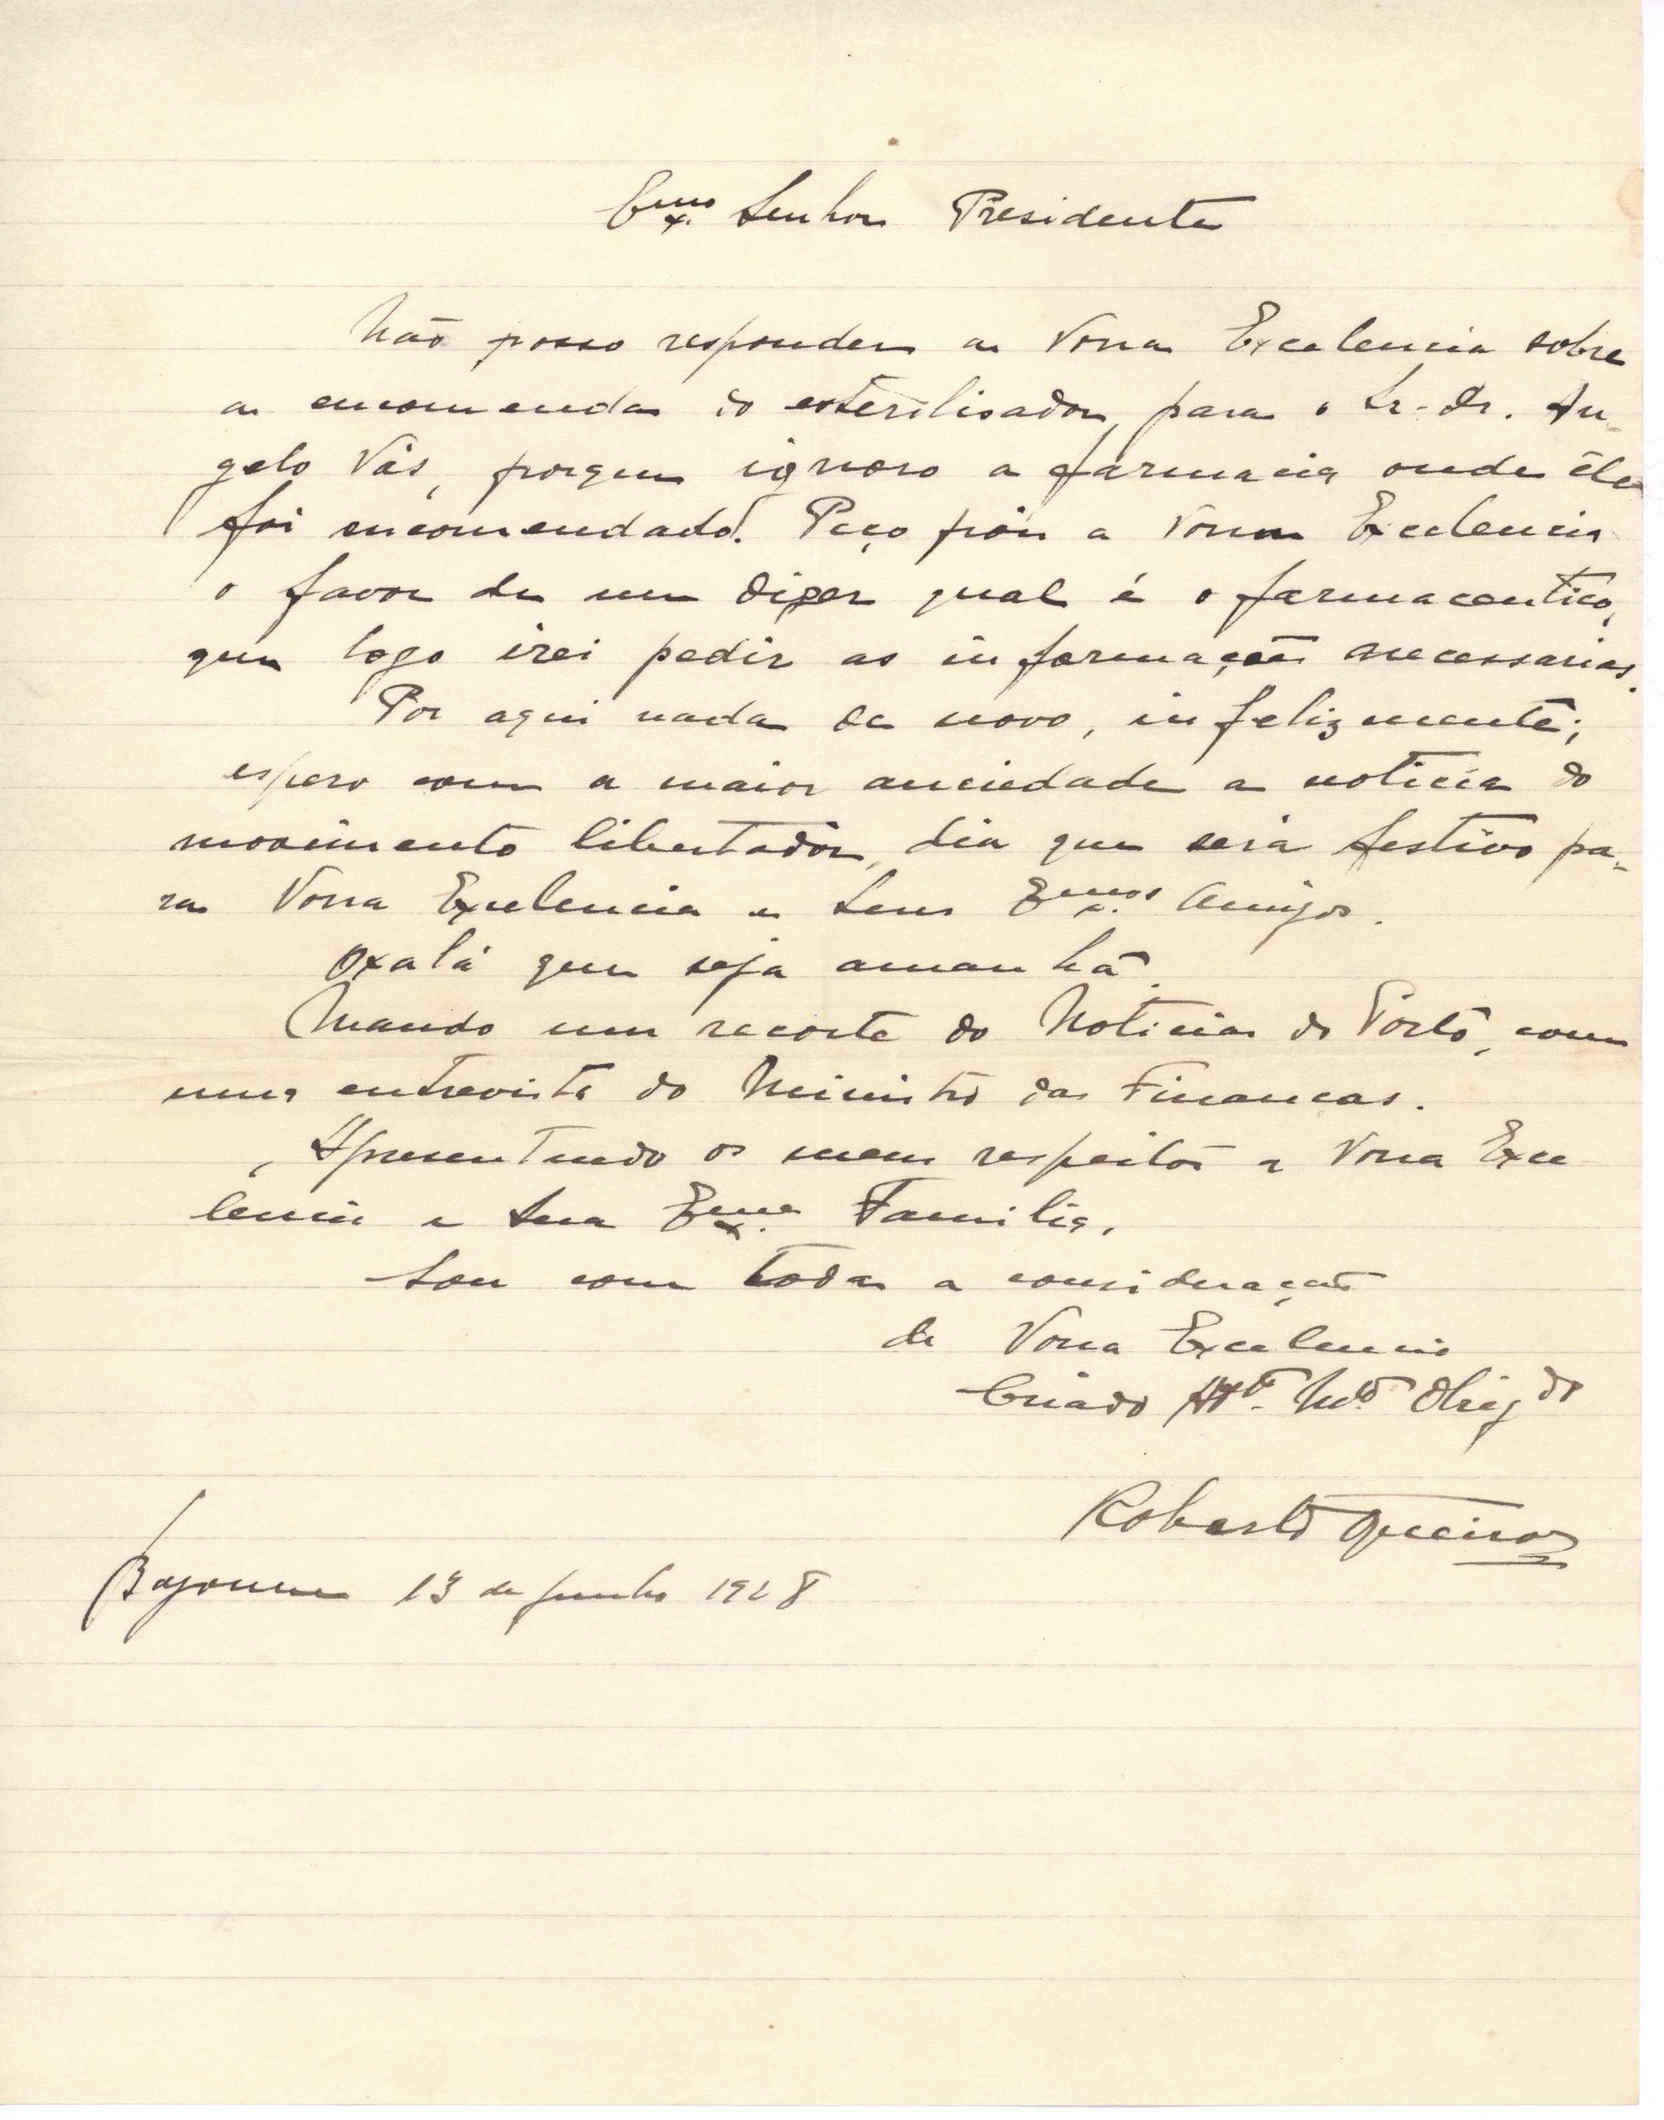 Exmo. Senhor Presidente
Não posso responder a Vossa Excelencia sobre
a encomenda do esterilisador para o Sr. Dr. An-
gelo Vás, porque ignoro a farmacia onde êle
foi encomendado. Peço pois a Vossa Excelencia
o favor de me dizer qual é o farmaceutico,
que logo irei pedir as informações necessarias.
Por aqui nada de novo, infelizmente;
espero com a maior anciedade a noticia do
movimento libertador, dia que será festivo pa-
ra Vossa Excelencia e seus Exmos. Amigos.
Oxalá que seja amanhã.
Mando um recorte do Noticias do Pôrto, com
uma entrevista do Ministro das Finanças.
Apresentando os meus respeitos a Vossa Exce
lencia e Sua Exma. Familia,
Sou com toda a consideração
de Vossa Excelencia
Criado Atto. Mto. Obrigdo
Roberto Queiroz
Bayonne 13 de Junho 1928